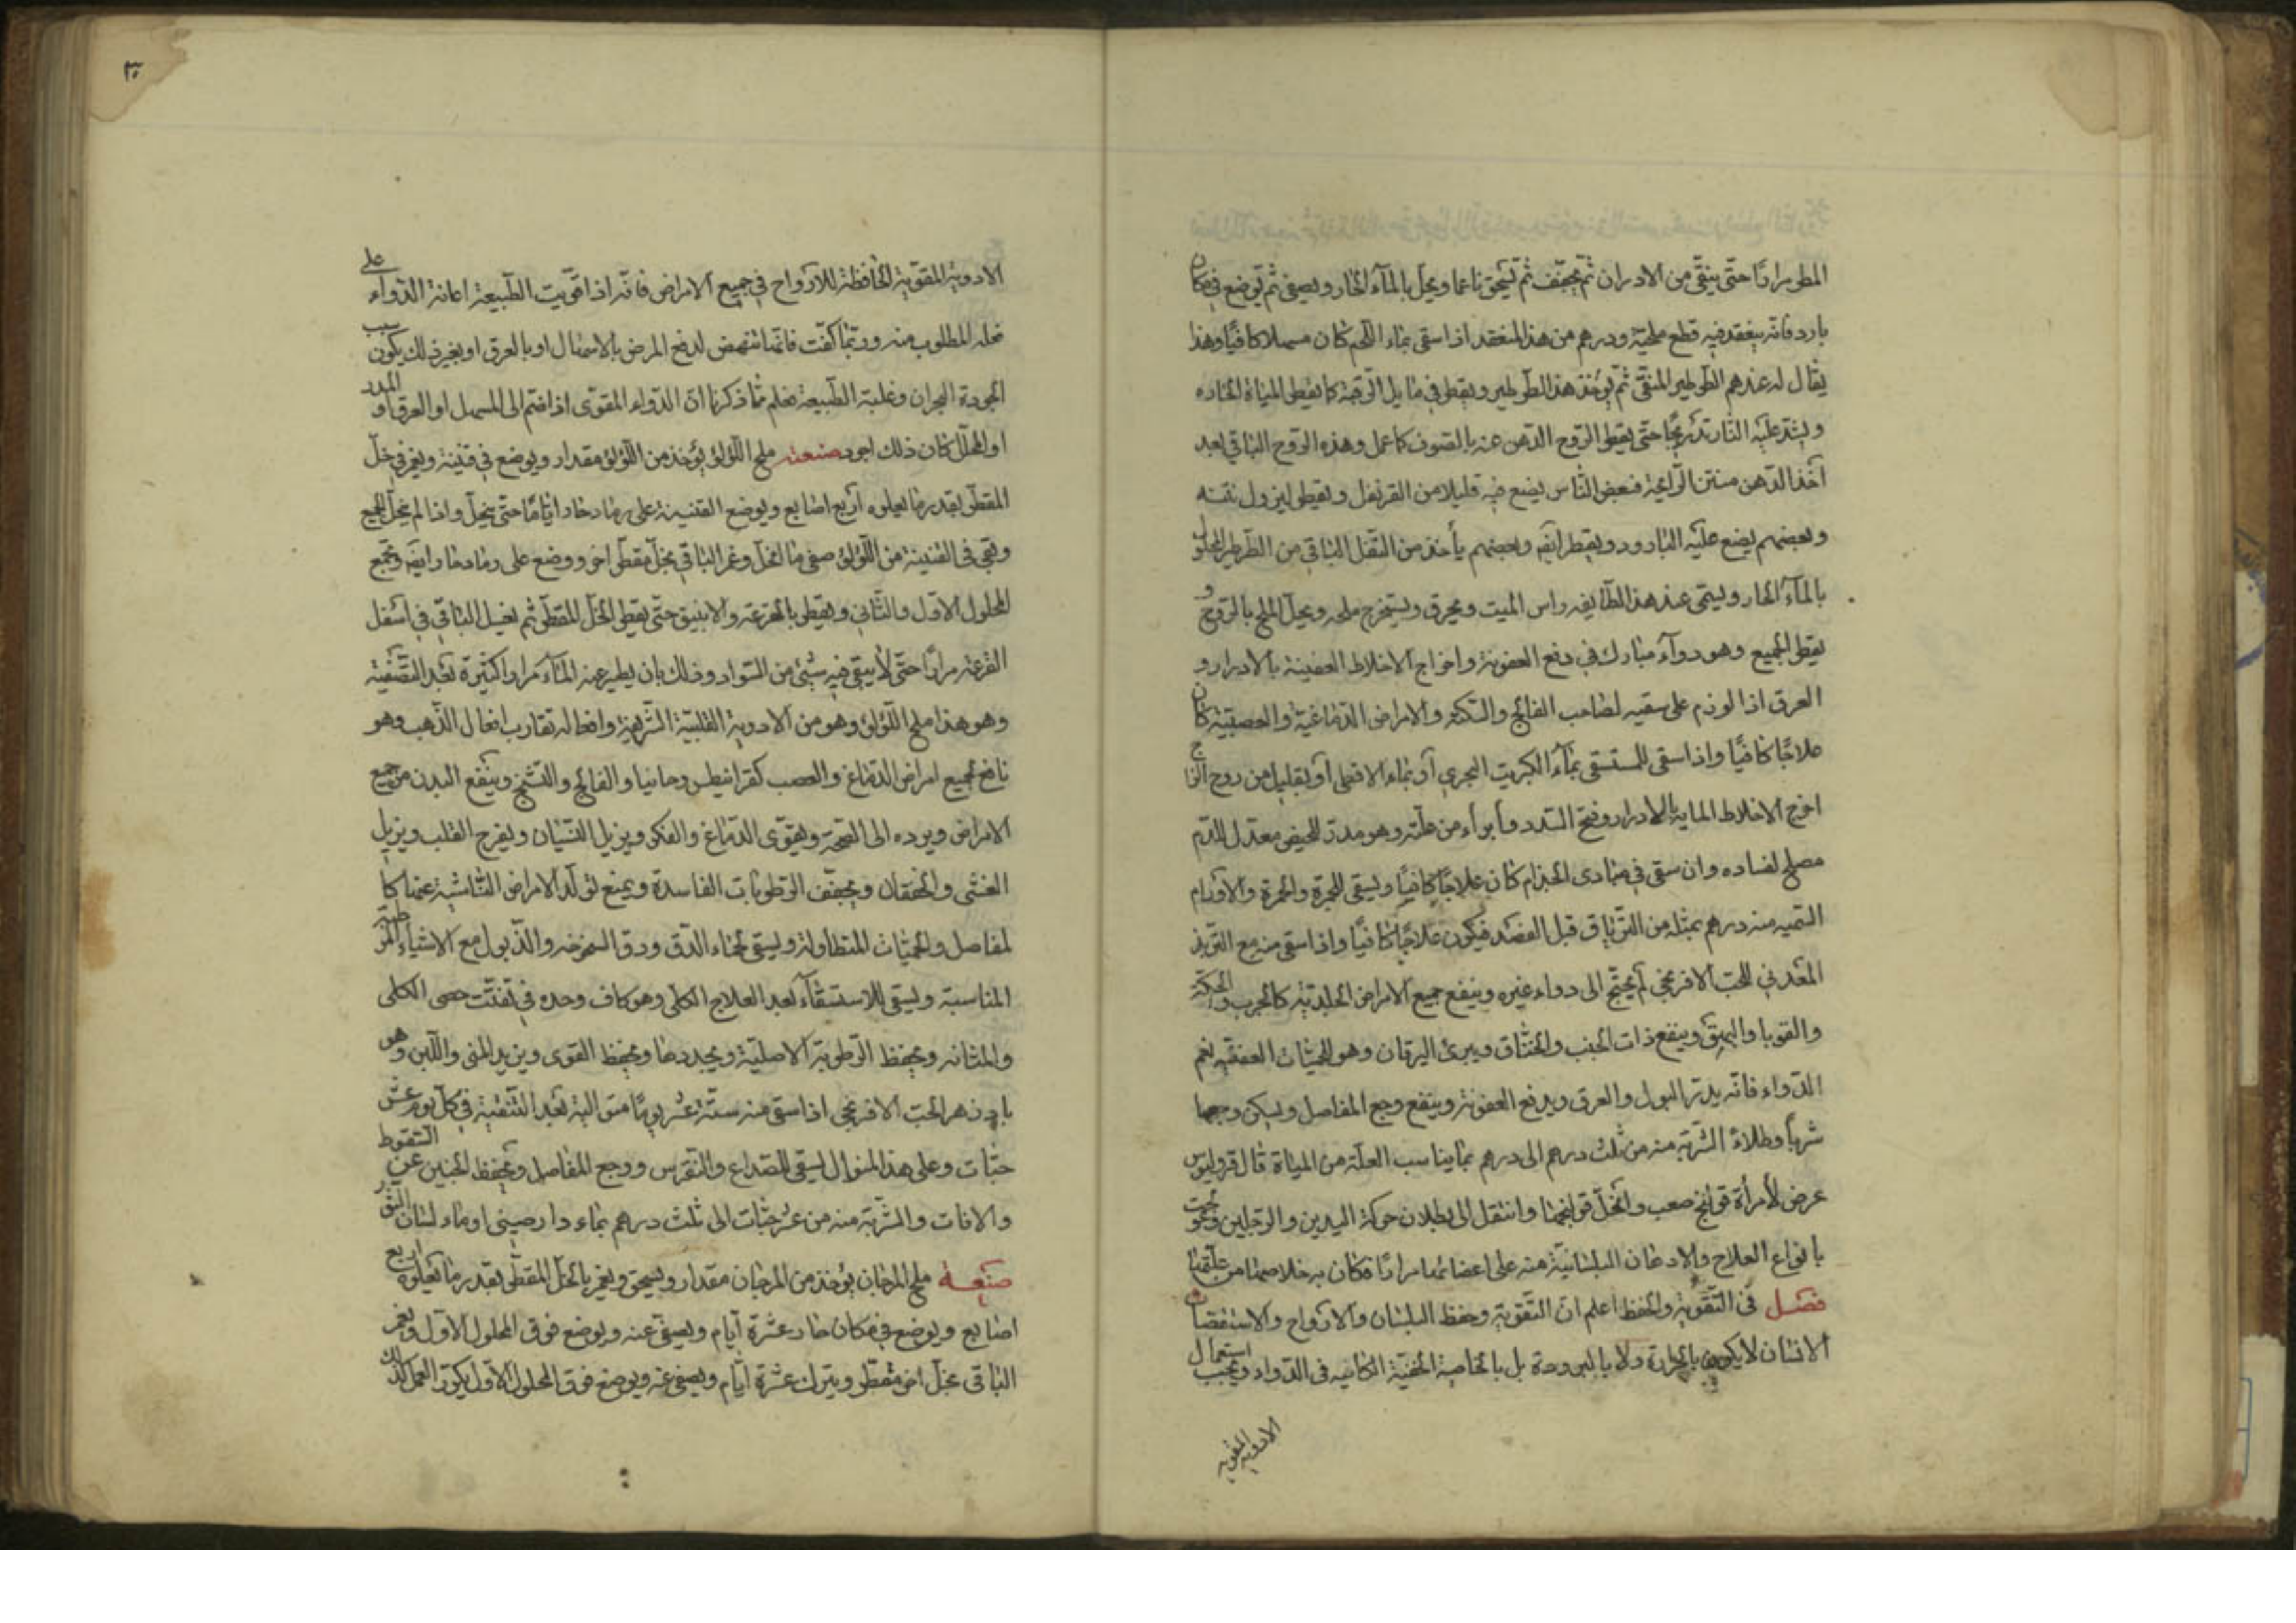 المطر مرارًا حتى ينقى من الادران ثم يجفف ثم يسحق ناعما ويحل بالمآء الحار ويصفى ثم يوضع في مكان
بارد فانه ينعقد فيه قطع ملحية ودرهم من هذا المنعقد اذا سقى بماء اللحم كان مسهلا كافيًا وهذا
يقال له عندهم الطرطير المنقى ثم يؤخذ هذا الطرطير ويقطر في مايل الرقبة كما يقطر المياة الحاده
ويشد عليه النار تدريجًا حتى يقطر الروح الدهن عنه بالصوف كما عمل وهذه الروح الباقي بعد
اخذ الدهن منتن الرايحة فبعض الناس يضع فيه قليلا من القرنفل ويقطر ليزول نتنه
وبعضهم يضع عليه البارود ويقطر ايضه وبعضهم يأخذ من الثقل الباقي من الطرطير المحلول
بالمآء الحار ويسمى عند هذا الطايفه راس الميت ويحرق ويستخرج ملحه ويحل الملح بالروح و
يقطر الجميع وهو دوآء مبارك في دفع العفونة واخراج الاخلاط العفينة بالادرار و
العرق اذا لوزم على سقيه لصاحب الفالج والسكته والامراض الدماغية والعصبية كان
علاجًا كافيًا واذا سقى للمستسقى بمآء الكبريت البحري أو بماء الاقطى أو بقليل من روح الزاج
اخرج الاخلاط المايه بالادرار وفتح السدد وأبراء من علته وهو مدر للحيض معدل للدم
مصلح لفساده وان سقى في مبادى الجزام كان علاجًا كافيًا ويسقى للجمرة والحمرة والاورام
السميه منه درهم بمثله من الترياق قبل الفصد فيكون علاجًا كافيًا واذا سقى منه مع التربذ
المعدني للحب الافرنجي لم يحتج الى دواء غيره وينفع جميع الامراض الجلديه كالجرب والحكة
والقوبا والبهق وينفع ذات الجنب والخناق ويبرئ اليرقان وهو للحميات العفنيه نعم
الدواء فانه يدر البول والعرق ويدفع العفونة وينفع وجع المفاصل ويسكن وجعها
شربًا وطلاءً الشربة منه من ثلث درهم الى درهم بما يناسب العلة من المياة قال قروليوس
عرض لأمرأة قولنج صعب وانحل قولنجها وانتقل الى بطلان حركة اليدين والرجلين وعولجت
بانواع العلاج والادهان البلسانية منه على اعضائها مرارًا فكان به خلاصها من علتها
فصل في التقوية والحفظ اعلم ان التقوية وحفظ البلسان والارواح
الانسان لا يكون بالحرارة ولا بالبرودة بل بالخاصة الخفية الكاينه في الدواء ويجب استعمال
الادويه المقويه
٣٠
الادويه المقوية الحافظة للارواح في جميع الامراض فانه اذا قويت الطبيعة اعانة الدوآء على
فعله المطلوب منه وربما كفت فانها تنهض لدفع المرض بالاسهال او بالعرق او بغير ذلك يكون سبب
لجودة البحران وغلبة الطبيعة فعلم مما ذكرنا ان الدواء المقوى اذا ضم الى المسهل او العرق او المدر
او المحلل كان ذلك اجود صنعة ملح اللؤلؤ يؤخذ من اللؤلؤ مقدار ويوضع في قنينة ويغمر في خل
المقطر بقدر ما يعلوه أربع اصابع ويوضع القنينة على رماد حار اياما حتى ينحل واذا لم ينحل الجميع
وبقى في القنينة من اللؤلؤ صفى ما انحل وغمر الباقي بخل مقطر اخر ووضع على رماد حار ايضه وتجمع
المحلول الاول والثانى ويقطر بالقرعة والانبيق حتى يقطر الخل المقطر ثم يغسل الباقي في اسفل
القرعة مرارًا حتى لا يبقى فيه شئ من السواد وذلك بان يطير عنه المآء مرارا كثيرة بعد التصفية
وهو هذا ملح اللؤلؤ وهو من الادوية القلبية الشريفة وافعاله تقارب افعال الذهب وهو
نافع لجميع امراض الدماغ والعصب كقرانيطس ومانيا والفالج والتشنج وينفع البدن من جميع
الامراض ويرده الى الصحة ويقوى الدماغ والفكر ويزيل النسيان ويفرح القلب ويزيل
الغشى والخفقان ويجفف الرطوبات الفاسدة ويمنع تولد الامراض الناشية عنها كا
لمفاصل والحميات المتطاولة ويسقى لحماء الدق ودق الشيخوخه والذبول مع الاشياء المرطبة
المناسبة ويسقى للاستسقاء بعد العلاج الكلى وهو كاف وحده في تفتت حصى الكلى
والمثانه ويحفظ الرطوبة الاصلية ويجددها ويحفظ القوى ويزيد المنى واللبن وهو
بادزهر الحب الافرنجي اذا سقى منه ستة عشر يومًا متوالية بعد التنقية في كل يوم عشر
حبات وعلى هذا المنوال يسقى للصداع والنقرس ووجع المفاصل ويحفظ الجنين عن السقوط
والافات والشربة منه من عشر حبات الى ثلث درهم بماء دارصينى او ماء لسان الثور
صنعة ملح المرجان يؤخذ من المرجان مقدار ويسحق ويغمر بالخل المقطر بقدر ما يعلوه اربع
اصابع ويوضع في مكان حار عشرة أيام ويصفى عنه ويوضع فوق المحلول الاول ويغمر
الباقى بخل اخر مقطر ويترك عشرة أيام ويصفى عنه ويوضع فوق المحلول الاول يكرر العمل كذلك